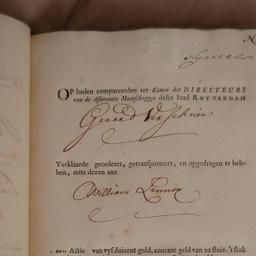 N
OP heden compareerden ter Kamer der DIRECTEURS
van de Assurantie Maatschappye deser Stad ROTTERDAM
Gerard
Verklaarde gecedeert, getransporteert, en opgedragen te heb-
ben, mits dezen aan
William Lennox
een Actie van vyfduizent guld, courant geld van 20 stuiv. 't stuk